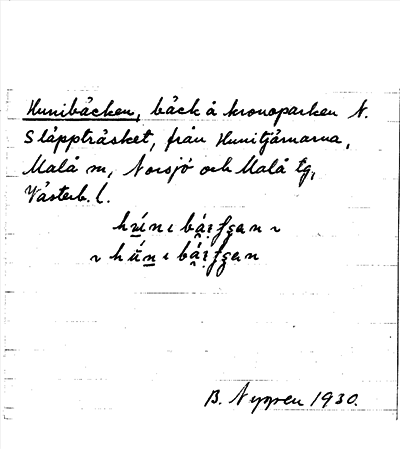 Hunibäcken, bäck å kronoparken N.
Släppträsket, från Hunitjärnarna,
Malå sn, Norsjö och Malå tg,
Västerb. l.
B. Nygren 1930.